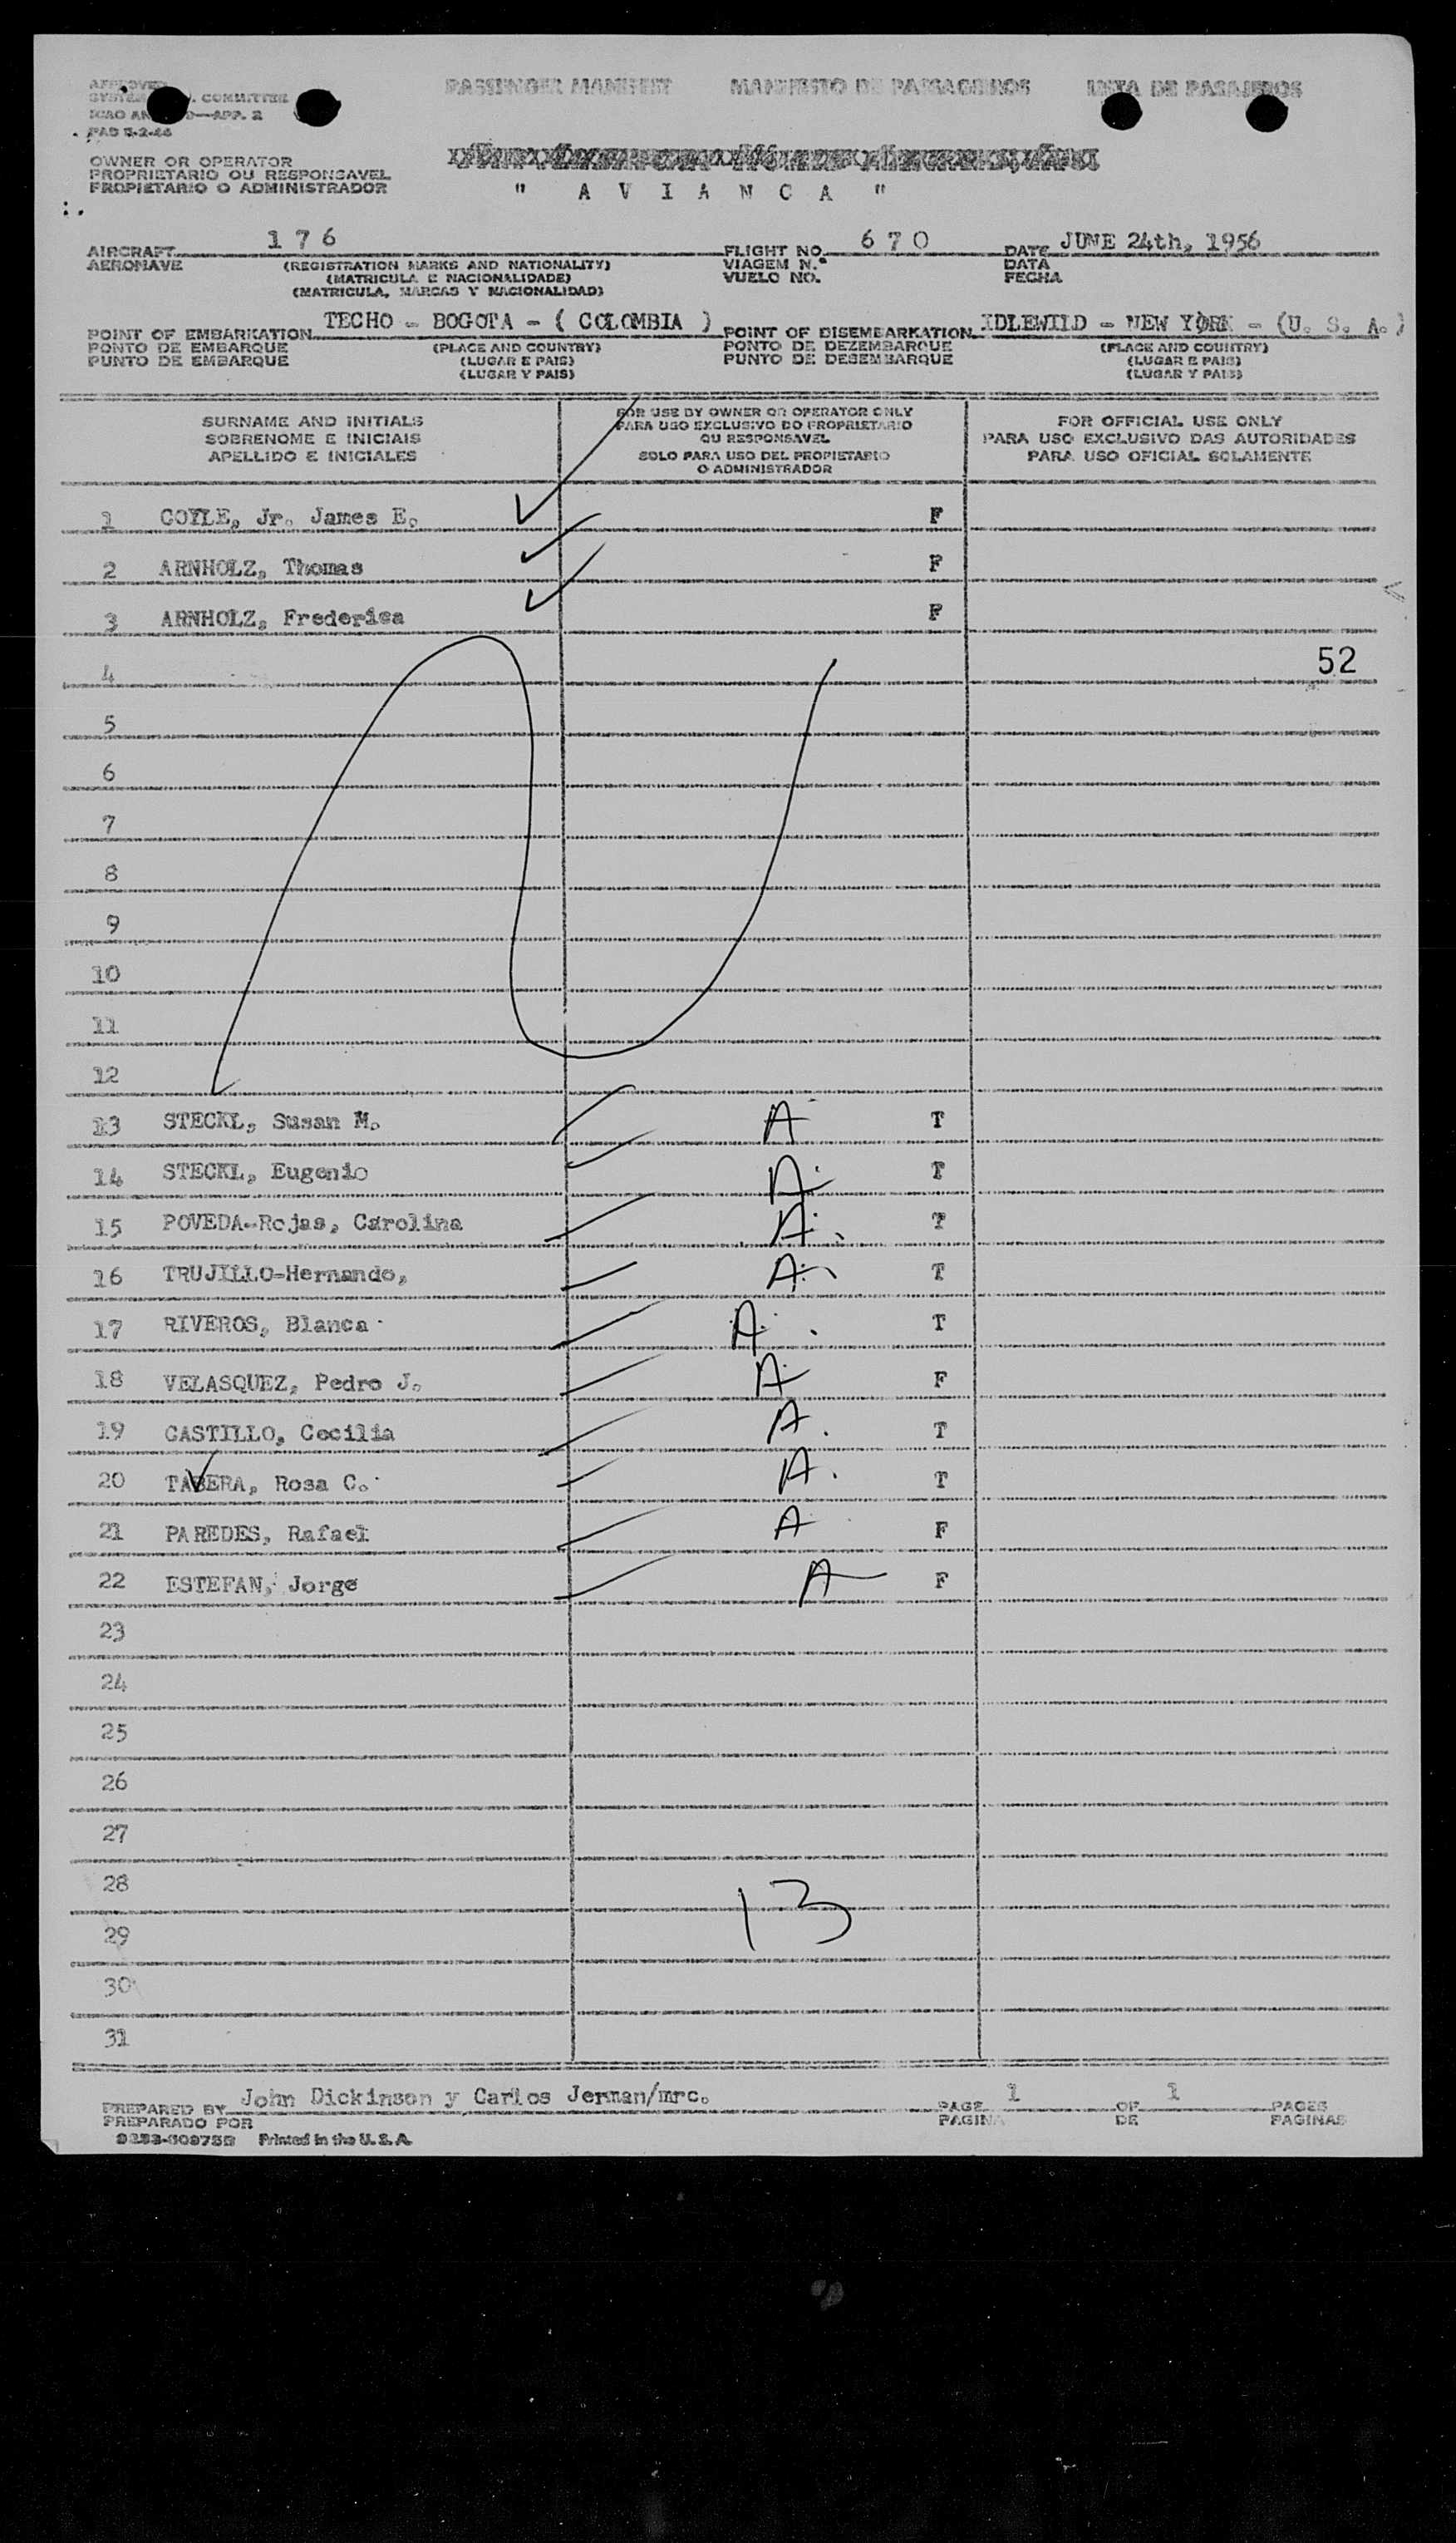 PASSENGER MANIFEST MANIFESTO DE PASSAGEIROS LISTA DE PASAJEROS
APPROVED
COMMITTEE
APP. 2
OWNER OR OPERATOR
PROPRIETARIO OU RESPONSAVEL
PROPIETARIO O ADMINISTRADOR
" A V I A N C A "
AIRCRAFT 176 FLIGHT NO. 670 DATE JUNE 24th, 1956
AERONAVE (REGISTRATION MARKS AND NATIONALITY) VIAGEM N.º DATA
(MATRICULA E NACIONALIDADE) VUELO NO. FECHA
(MATRICULA, MARCAS Y NACIONALIDAD)
POINT OF EMBARKATION TECHO - BOGOTA - ( COLOMBIA ) POINT OF DISEMBARKATION IDLEWILD - NEW YORK - (U. S. A.)
PONTO DE EMBARQUE (PLACE AND COUNTRY) PONTO DE DEZEMBARQUE (PLACE AND COUNTRY)
PUNTO DE EMBARQUE (LUGAR E PAIS) PUNTO DE DESEMBARQUE (LUGAR E PAIS)
(LUGAR Y PAIS) (LUGAR Y PAIS)
SURNAME AND INITIALS
SOBRENOME E INICIAIS
APELLIDO E INICIALES
FOR USE BY OWNER OR OPERATOR ONLY
PARA USO EXCLUSIVO DO PROPRIETARIO
OU RESPONSAVEL
SOLO PARA USO DEL PROPIETARIO
O ADMINISTRADOR
FOR OFFICIAL USE ONLY
PARA USO EXCLUSIVO DAS AUTORIDADES
PARA USO OFICIAL SOLAMENTE
1 COYLE, Jr. James E. F
2 ARNHOLZ, Thomas F
3 ARNHOLZ, Frederica F
4 52
5
6
7
8
9
10
11
12
13 STECKL, Susan M. A T
14 STECKL, Eugenio A T
15 POVEDA-Rojas, Carolina A T
16 TRUJILLO-Hernando, A T
17 RIVEROS, Blanca A T
18 VELASQUEZ, Pedro J. A F
19 CASTILLO, Cecilia A T
20 TABERA, Rosa C. A T
21 PAREDES, Rafael A F
22 ESTEFAN, Jorge A F
23
24
25
26
27
28
13
29
30
31
PREPARED BY John Dickinson y Carlos Jerman/mrc. PAGE 1 OF 1 PAGES
PREPARADO POR PAGINA DE PAGINAS
Printed in the U. S. A.